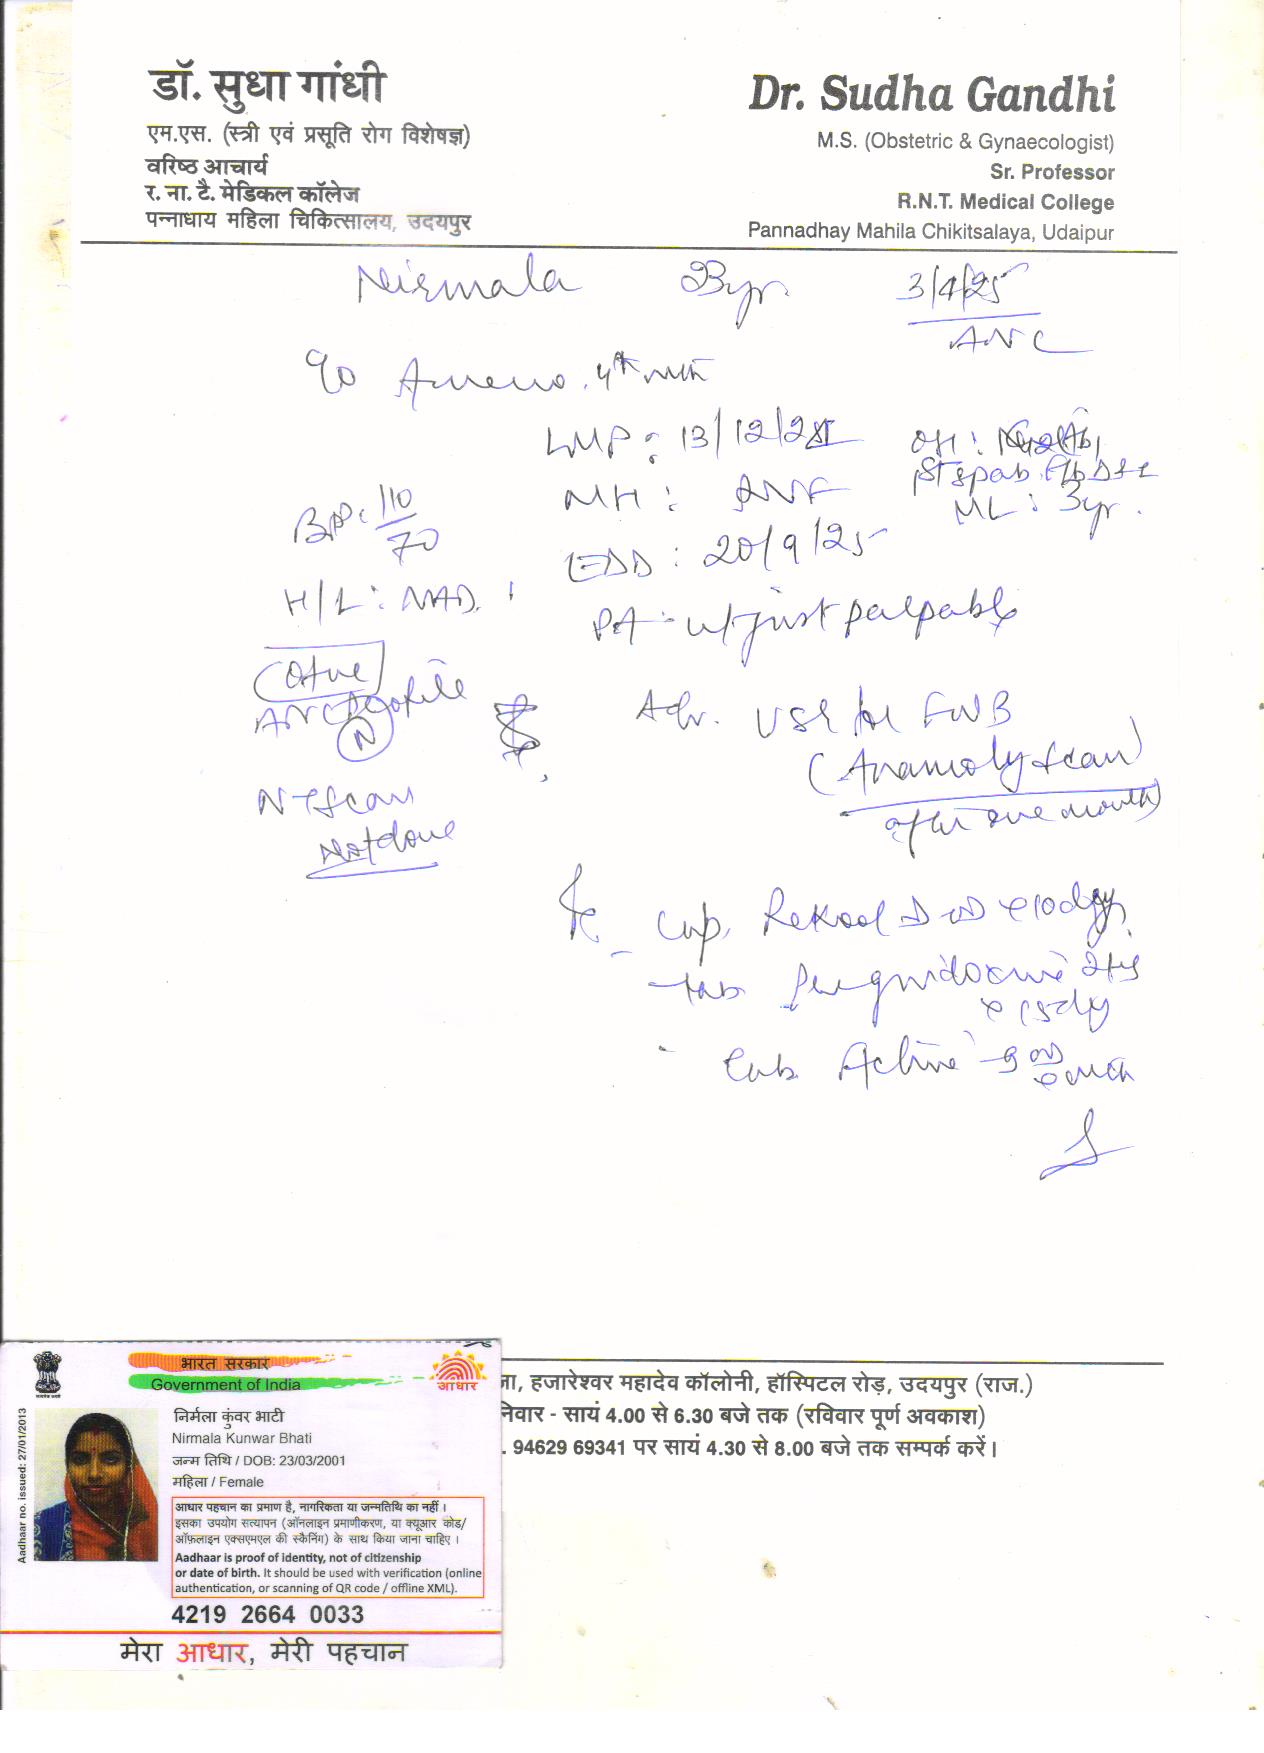 डॉ. सुधा गांधी
एम.एस. (स्त्री एवं प्रसूति रोग विशेषज्ञ)
वरिष्ठ आचार्य
र. ना. टै. मेडिकल कॉलेज
पन्नाधाय महिला चिकित्सालय, उदयपुर
Dr. Sudha Gandhi
M.S. (Obstetric & Gynaecologist)
Sr. Professor
R.N.T. Medical College
Pannadhay Mahila Chikitsalaya, Udaipur
Nirmala 3/4/25
ANC
c/o Ameno. 4th mth
LMP: 13/12/24
MH:
ML: 3yr.
BP: 110/70
EDD: 20/9/25
H/L: NAD.
PA: ut just palpable
ANC Profile
N
Adv. USG for FWB
(Anamoly scan)
after one month
NT scan
Not done
Cap. Rekool D OD x 10 days
Tab
Tab. Active
भारत सरकार
Government of India
आधार
Aadhaar no. issued: 27/01/2013
निर्मला कुंवर भाटी
Nirmala Kunwar Bhati
जन्म तिथि / DOB: 23/03/2001
महिला / Female
आधार पहचान का प्रमाण है, नागरिकता या जन्मतिथि का नहीं ।
इसका उपयोग सत्यापन (ऑनलाइन प्रमाणीकरण, या क्यूआर कोड/
ऑफ़लाइन एक्सएमएल की स्कैनिंग) के साथ किया जाना चाहिए ।
Aadhaar is proof of identity, not of citizenship
or date of birth. It should be used with verification (online
authentication, or scanning of QR code / offline XML).
4219 2664 0033
मेरा आधार, मेरी पहचान
हजारेश्वर महादेव कॉलोनी, हॉस्पिटल रोड़, उदयपुर (राज.)
- सायं 4.00 से 6.30 बजे तक (रविवार पूर्ण अवकाश)
94629 69341 पर सायं 4.30 से 8.00 बजे तक सम्पर्क करें।